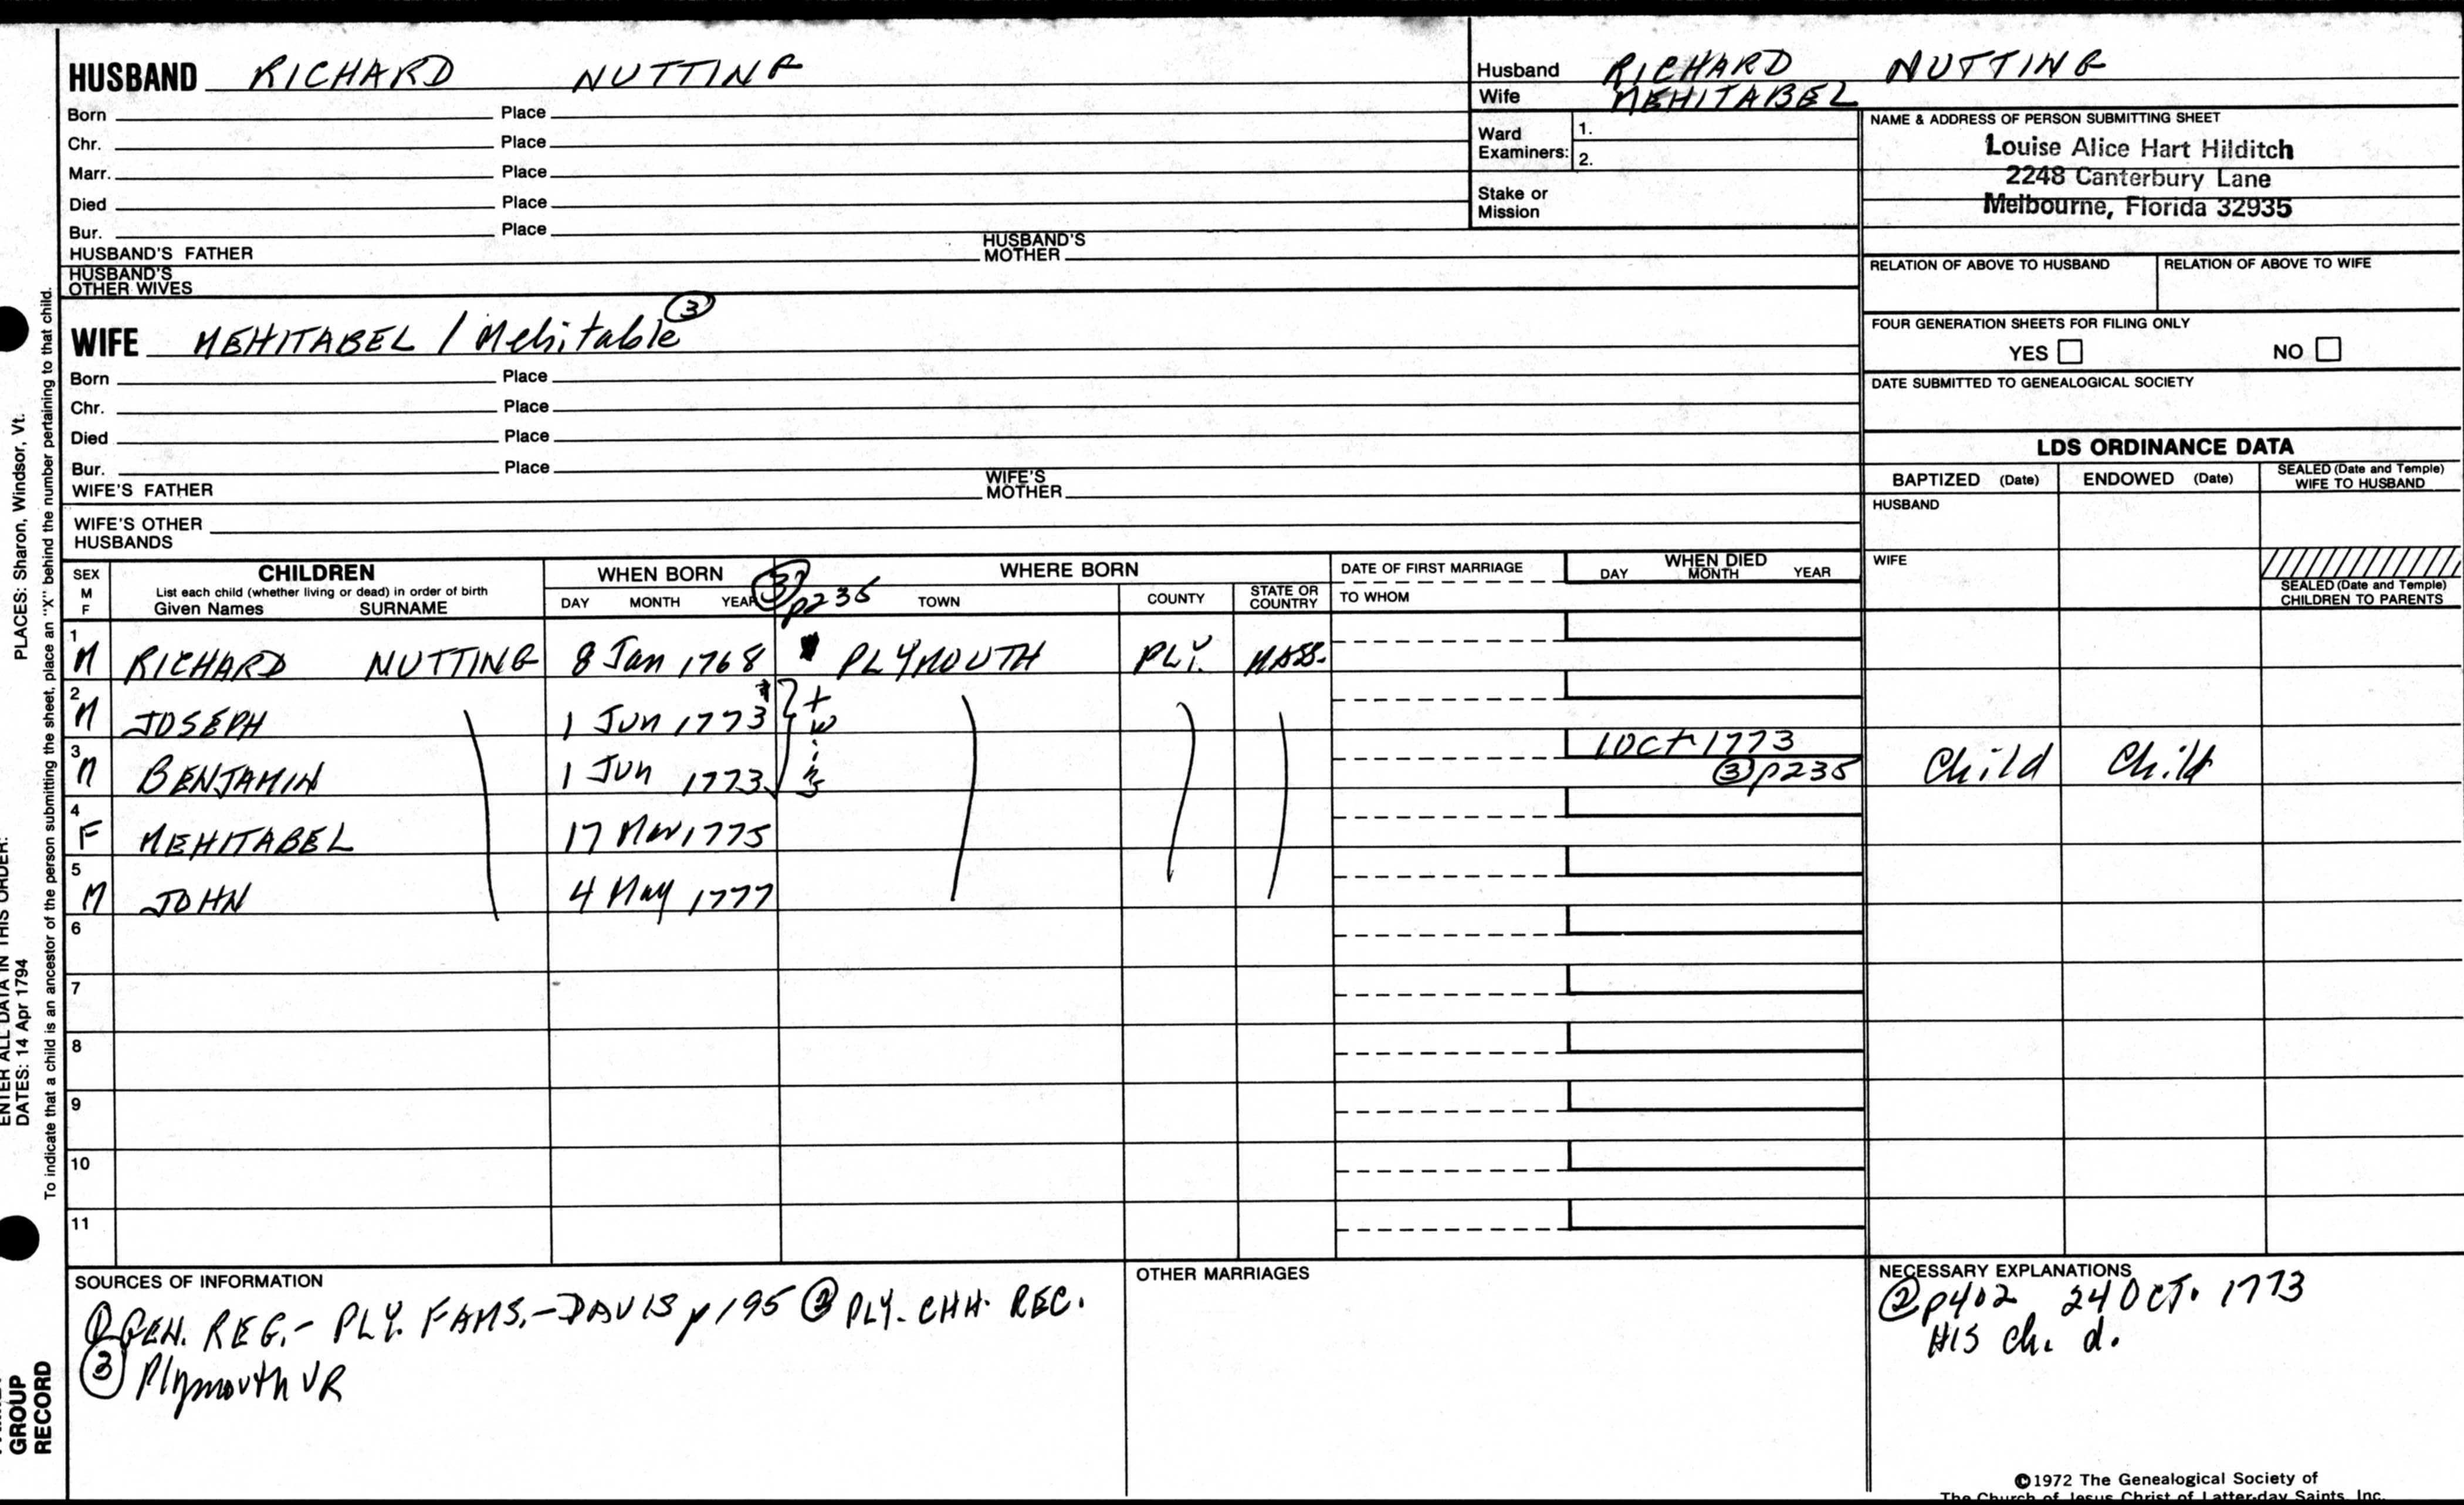 HUSBAND RICHARD NUTTING
Born Place
Chr. Place
Marr. Place
Died Place
Bur. Place
HUSBAND'S FATHER HUSBAND'S MOTHER
HUSBAND'S OTHER WIVES
Husband RICHARD NUTTING
Wife MEHITABEL
Ward Examiners: 1.
2.
Stake or Mission
NAME & ADDRESS OF PERSON SUBMITTING SHEET
Louise Alice Hart Hilditch
2248 Canterbury Lane
Melbourne, Florida 32935
RELATION OF ABOVE TO HUSBAND RELATION OF ABOVE TO WIFE
FOUR GENERATION SHEETS FOR FILING ONLY
YES NO
DATE SUBMITTED TO GENEALOGICAL SOCIETY
WIFE MEHITABEL / Mehitable ③
Born Place
Chr. Place
Died Place
Bur. Place
WIFE'S FATHER WIFE'S MOTHER
WIFE'S OTHER HUSBANDS
LDS ORDINANCE DATA
BAPTIZED (Date) ENDOWED (Date) SEALED (Date and Temple) WIFE TO HUSBAND
HUSBAND
WIFE
SEALED (Date and Temple) CHILDREN TO PARENTS
SEX M F
CHILDREN
List each child (whether living or dead) in order of birth
Given Names SURNAME
WHEN BORN
DAY MONTH YEAR
③ p235
WHERE BORN
TOWN COUNTY STATE OR COUNTRY
DATE OF FIRST MARRIAGE
TO WHOM
WHEN DIED
DAY MONTH YEAR
1 M RICHARD NUTTING 8 Jan 1768 PLYMOUTH PLY. MASS.
2 M JOSEPH 1 Jun 1773 twins
3 M BENJAMIN 1 Jun 1773 1 Oct 1773 ③ p235 Child Child
4 F MEHITABEL 17 Mar 1775
5 M JOHN 4 May 1777
6
7
8
9
10
11
SOURCES OF INFORMATION
① GEN. REG. - PLY. FAMS. - DAVIS p 195 ② PLY. CHH. REC.
③ Plymouth VR
OTHER MARRIAGES
NECESSARY EXPLANATIONS
② p402 24 OCT. 1773
HIS ch. d.
©1972 The Genealogical Society of
The Church of Jesus Christ of Latter-day Saints, Inc.
PLACES: Sharon, Windsor, Vt.
ENTER ALL DATA IN THIS ORDER:
DATES: 14 Apr 1794
To indicate that a child is an ancestor of the person submitting the sheet, place an "X" behind the number pertaining to that child.
GROUP
RECORD